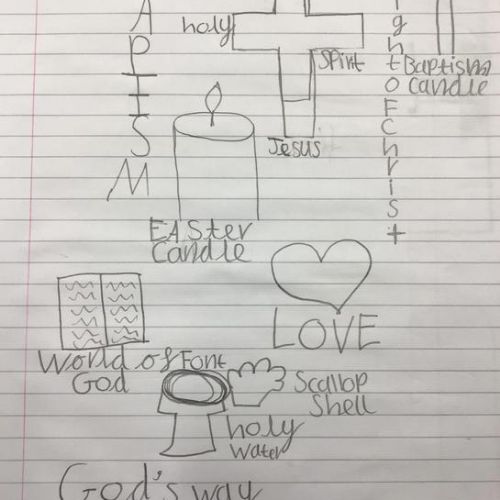 APTISM
holy
Spirit
Jesus
ightofChrist
Baptism
Candle
EASter
Candle
LOVE
World of
God
Font
Scallop
Shell
holy
water
God's way